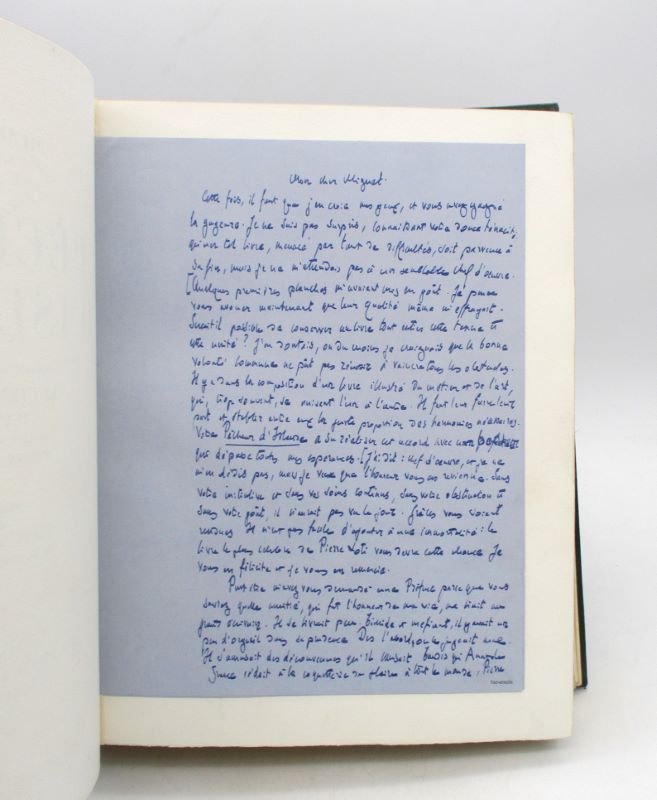 Mon cher Miguet.
Cette fois, il faut que j'en croie mes yeux, et vous avez gagné
la gageure. Je ne suis pas surpris, connaissant votre douce ténacité,
qu'un tel livre, menacé par tant de difficultés, soit parvenu à
sa fin, mais je ne m'attendais pas à un semblable chef d'œuvre.
Quelques premières planches m'avaient mis en goût. Je puis
vous avouer maintenant que leur qualité même m'effrayait.
Serait-il possible de conserver au livre tout entier cette tenue et
cette unité ? J'en doutais, ou du moins je craignais que la bonne
volonté commune ne pût pas réussir à vaincre tous les obstacles.
Il y a dans la composition d'un livre illustré du métier et de l'art,
qui, trop souvent, se nuisent l'un à l'autre. Il faut leur faire leur
part et établir entre eux la juste proportion des harmonies nécessaires.
Votre Pêcheur d'Islande a su réaliser cet accord avec une
qui dépasse toutes mes espérances. J'ai dit : chef d'œuvre, et je ne
m'en dédis pas, mais je veux que l'honneur vous en revienne. Sans
votre initiative et sans vos soins continus, sans votre obstination et
sans votre goût, il n'aurait pas vu le jour. Grâces vous soient
rendues. Il n'est pas facile d'ajouter à une immortalité : le
livre le plus célèbre de Pierre Loti vous devra cette chance. Je
vous en félicite et je vous en remercie.
Peut-être m'avez-vous demandé une Préface parce que vous
saviez quelle amitié, qui fut l'honneur de ma vie, me liait au
grand écrivain. Il se livrait peu. Timide et méfiant, il y avait un
peu d'orgueil dans sa pudeur. Dès l'abord, on le jugeait mal.
Il s'amusait des déconvenues qu'il causait. Tandis qu'Anatole
France cédait à la coquetterie de plaire à tout le monde, Pierre